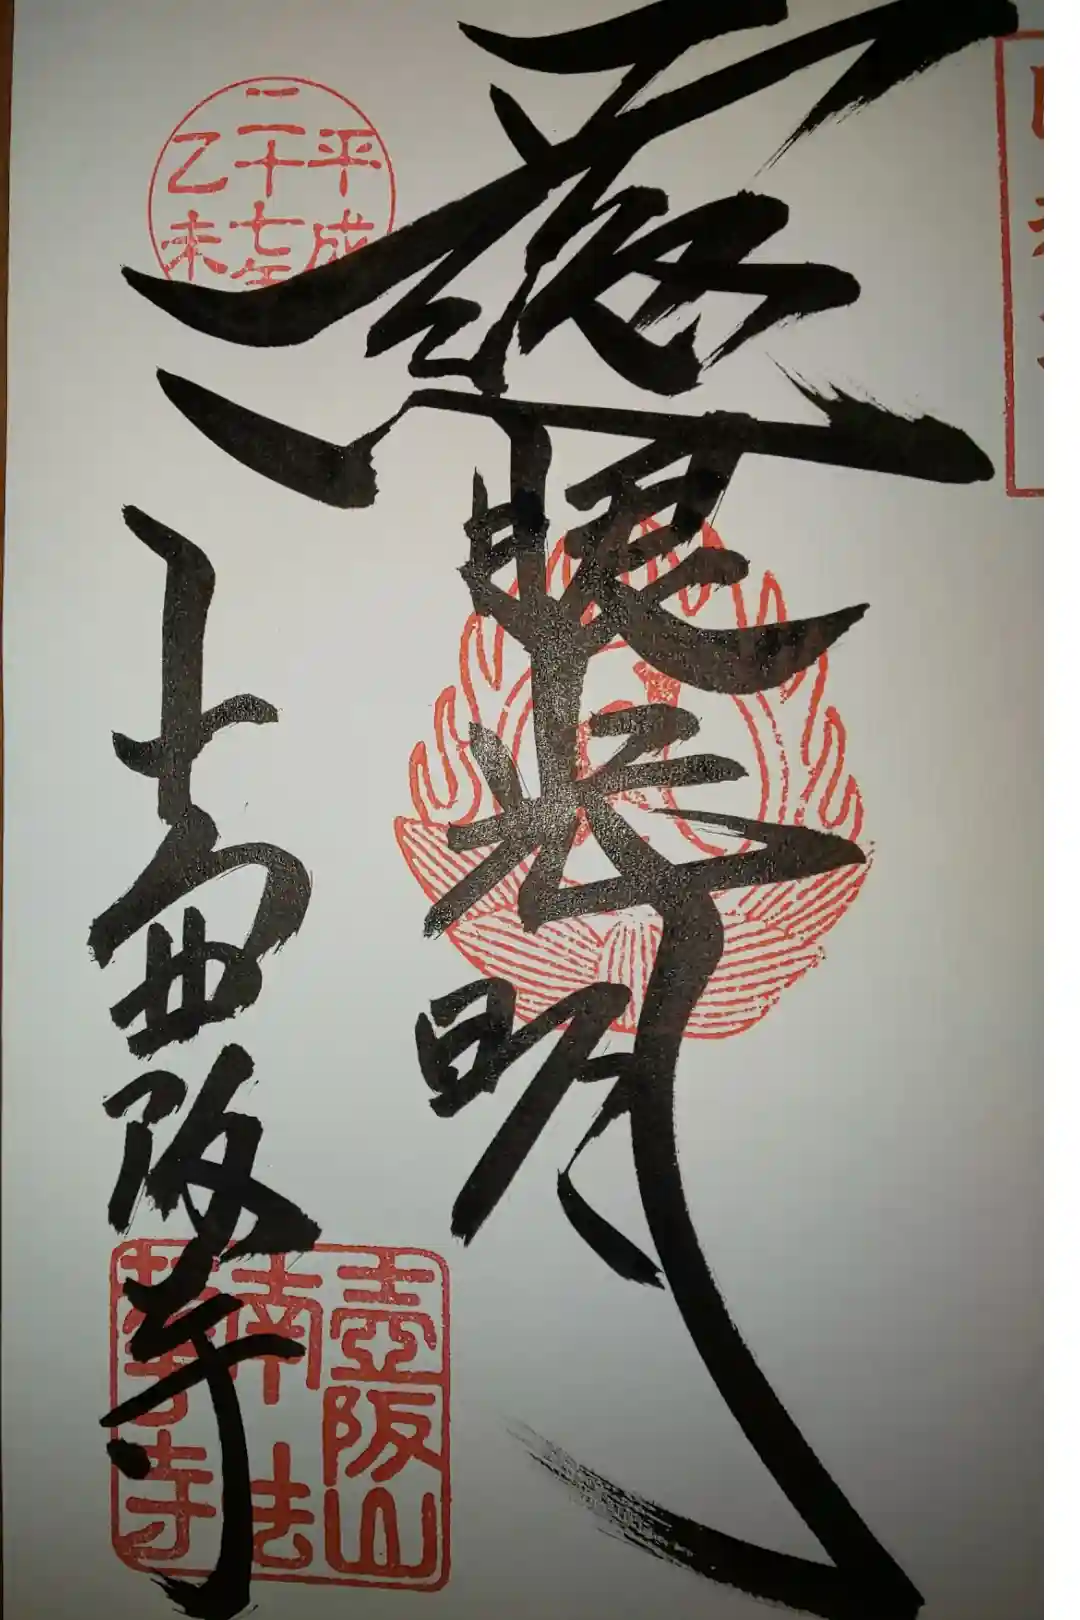 慈眼光明
平成
二十七年
乙未
壺阪寺
壺阪山
南法
華寺